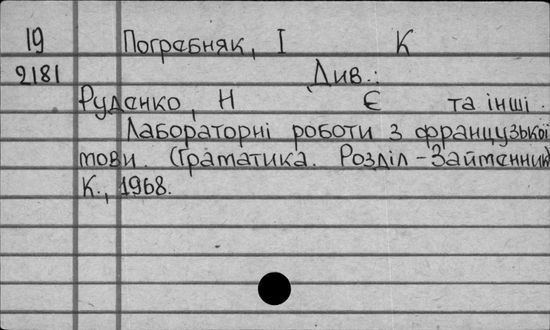 19 Пограбняк, І К
2181 Див.:
Руденко, Н Є та інші.
Лабораторні роботи з французької
мови. (Граматика. Розділ - Займенник)
К., 1968.